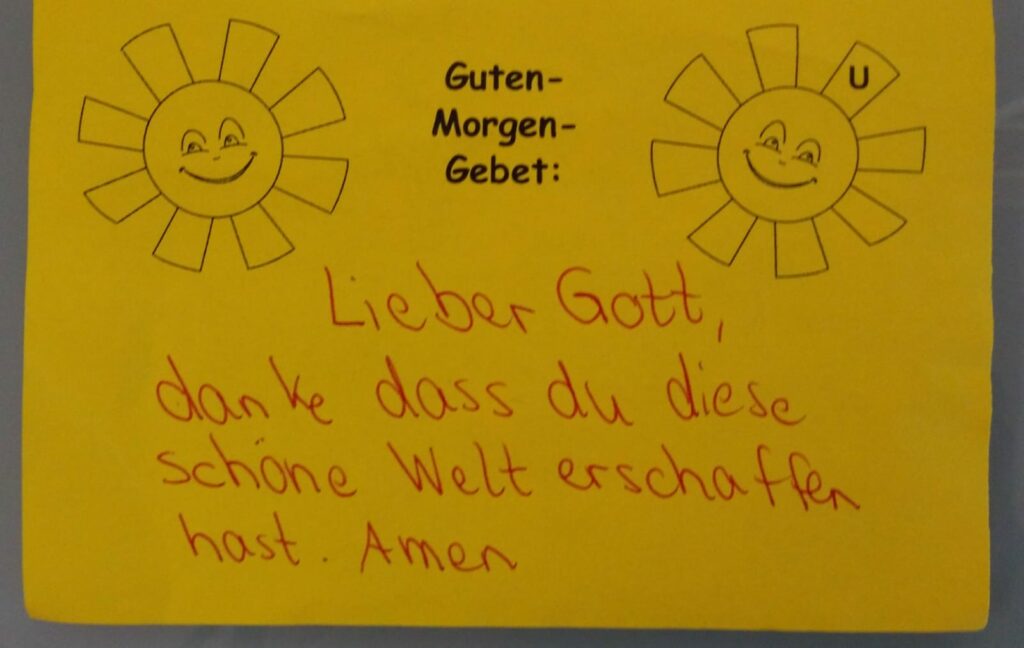 Guten-
Morgen-
Gebet:
U
Lieber Gott,
danke dass du diese
schöne Welt erschaffen
hast. Amen